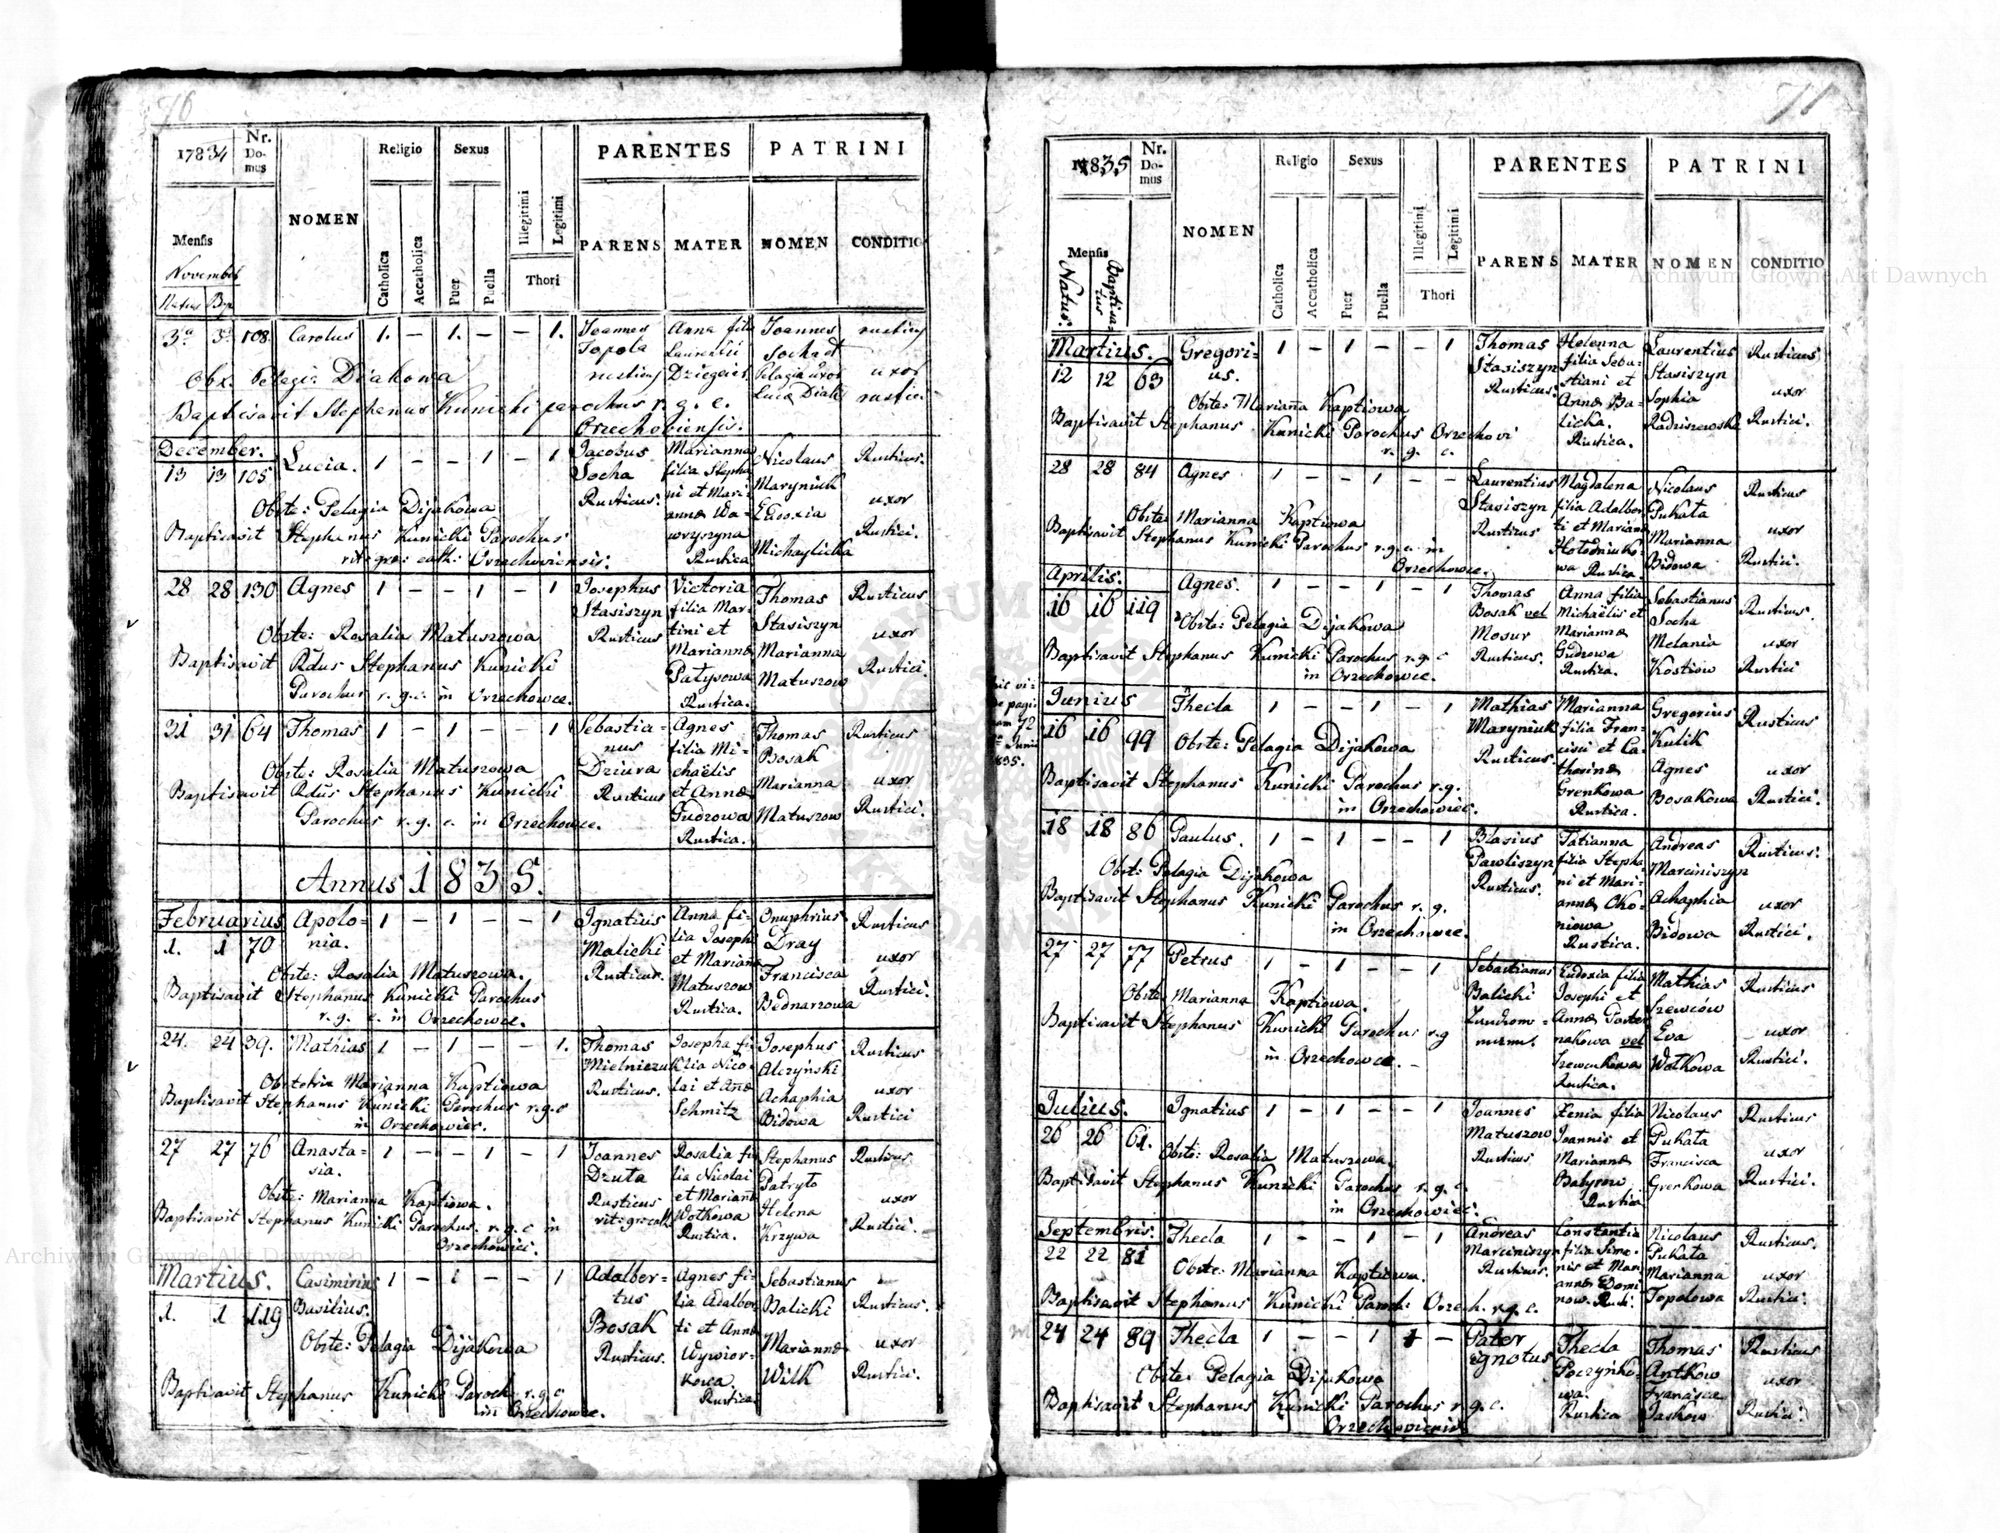 70
17834
Nr. Domus
NOMEN
Religio
Sexus
Illegitimi
Legitimi
PARENTES
PATRINI
Mensis
November
Natus Bap.
Catholica
Accatholica
Puer
Puella
Thori
PARENS
MATER
NOMEN
CONDITIO
3a 3a 108 Carolus 1. – 1. – – 1.
Joannes
Topola
Anna filia
Laurentii
Joannes
Socha et
Pelagia uxor
uxor
Obx. Pelagi: Diakowa
Baptisavit Stephanus Kunicki parochus r. g. c.
Orzechoviensis.
December.
13 13 105 Lucia. 1 – – 1 – 1
Jacobus
Socha
Rusticus.
Marianna
filia Stepha
ni et Mari
annæ Wa-
wryszyna
Rustica
Nicolaus
Maryniuk
Eudoxia
Michaylicka
Rusticus.
uxor
Rustici.
Obste: Pelagia Dijakowa
Baptisavit Stephanus Kunicki Parochus
rit: gre: cath: Orzechoviensis.
28 28 130 Agnes 1 – – 1 – 1
Josephus
Stasiszyn
Rusticus
Victoria
filia Mar-
tini et
Mariannæ
Patysowa
Rustica.
Thomas
Stasiszyn
Marianna
Matuszow
Rusticus
uxor
Rustici.
Obste: Rosalia Matuszowa
Baptisavit Rdus Stephanus Kunicki
Parochus r.g.c. in Orzechowce.
31 31 64 Thomas 1 – 1 – – 1
Sebastia-
nus
Dziura
Rusticus
Agnes
filia Mi-
chaëlis
et Annæ
Gudzowa
Rustica.
Thomas
Bosak
Marianna
Matuszow
Rusticus
uxor
Rustici.
Obste: Rosalia Matuszowa
Baptisavit Rdus Stephanus Kunicki
Parochus r. g. c. in Orzechowce.
Annus 1835.
Februarius
1. 1 70 Apolo-
nia. 1 – 1 – – 1
Ignatius
Malicki
Rusticus.
Anna fi-
lia Josephi
et Marianæ
Matuszow
Rustica.
Onuphrius
Dray
Francisca
Bednarzowa
Rusticus
uxor
Rustici.
Obste: Rosalia Matuszowa.
Baptisavit Stephanus Kunicki Parochus
r. g. c. in Orzechowce.
24. 24 39. Mathias 1 – 1 – – 1.
Thomas
Mielniczuk
Rusticus.
Josepha fi-
lia Nico-
lai et Annæ
Schmitz
Josephus
Olczyński
Achaphia
Bidowa
Rusticus
uxor
Rustici
Obstetrix Marianna Kaptiowa
Baptisavit Stephanus Kunicki Parochus r.g.c
in Orzechowiec.
27 27 76 Anasta-
sia. 1 – – 1 – 1
Joannes
Dzuta
Rusticus
rit: gr: cath
Rosalia fi-
lia Nicolai
et Mariannæ
Wotkowa
Rustica.
Stephanus
Patryto
Helena
Krzywa
Rusticus
uxor
Rustici.
Obste: Marianna Kaptiowa.
Baptisavit Stephanus Kunicki Parochus. r. g. c. in
Orzechowiec.
Martius.
1. 1 119 Casimirius
Basilius. 1 – 1 – – 1
Adalber-
tus
Bosak
Rusticus.
Agnes fi-
lia Adalber-
ti et Annæ
Wywior-
kowa
Rustica
Sebastianus
Balicki
Marianna
Wilk
Rusticus.
uxor
Rustici.
Obste: Pelagia Dijakowa
Baptisavit Stephanus Kunicki Paroch: r. g. c
in Orzechowce.
71
1835
Nr. Domus
NOMEN
Religio
Sexus
Illegitimi
Legitimi
PARENTES
PATRINI
Mensis
Natus.
Baptisatus
Catholica
Accatholica
Puer
Puella
Thori
PARENS
MATER
NOMEN
CONDITIO
Martius.
12 12 63 Gregori-
us. 1 – 1 – – 1
Thomas
Stasiszyn
Rusticus.
Helenna
filia Seba-
stiani et
Annæ Ba-
licka.
Rustica.
Laurentius
Stasiszyn
Sophia
Radziszewska
Rusticus
uxor
Rustici.
Obste: Marianna Kaptiowa
Baptisavit Stephanus Kunicki Parochus Orzechovi
r. g. c.
28 28 84 Agnes 1 – – 1 – 1
Laurentius
Stasiszyn
Rusticus
Magdalena
filia Adalber
ti et Mariann
Hotodniuko-
wa Rustica.
Nicolaus
Pukata
Marianna
Bidowa
Rusticus
uxor
Rustici.
Obste: Marianna Kaptiowa
Baptisavit Stephanus Kunicki Parochus r.g.c. in
Orzechowce.
Aprilis.
16 16 119 Agnes. 1 – – 1 – 1
Thomas
Bosak vel
Mosur
Rusticus.
Anna filia
Michaëlis et
Mariannæ
Gudzowa
Rustica.
Sebastianus
Socha
Melania
Kostiow
Rusticus.
uxor
Rustici
Obste: Pelagia Dijakowa
Baptisavit Stephanus Kunicki Parochus r.g. c
in Orzechowce.
Junius
16 16 99 Thecla 1 – – 1 – 1
Mathias
Maryniuk
Rusticus.
Marianna
filia Fran-
cisci et Ca-
tharinæ
Grenkowa
Rustica.
Gregorius
Kulik
Agnes
Bosakowa
Rusticus
uxor
Rustici.
Obste: Pelagia Dijakowa
Baptisavit Stephanus Kunicki Parochus r.g.
in Orzechowiec.
18 18 86 Paulus. 1 – 1 – – 1
Blasius
Pawliszyn
Rusticus.
Tatianna
filia Stepha
ni et Mari-
annæ Oko-
niowa
Rustica.
Andreas
Marciniszyn
Achaphia
Bidowa
Rusticus.
uxor
Rustici.
Obst: Pelagia Dijakowa
Baptisavit Stephanus Kunicki Parochus r. g.
in Orzechowce.
27 27 77 Petrus 1 – 1 – – 1
Sebastianus
Balicki
Eudoxia filia
Josephi et
Annæ Paster
nakowa vel
Szewcukowa
Rustica.
Mathias
Szewciów
Eva
Wotkowa
Rusticus
uxor
Rustici.
Obste: Marianna Kaptiowa.
Baptisavit Stephanus Kunicki Parochus r. g
in Orzechowce.
Julius.
26 26 61. Ignatius 1 – 1 – – 1
Joannes
Matuszow
Rusticus
Xenia filia
Joannis et
Mariannæ
Batyrow
Rustica
Nicolaus
Pukata
Francisca
Grenkowa
Rusticus
uxor
Rustici.
Obste: Rosalia Matuszowa.
Baptisavit Stephanus Kunicki Parochus r. g. c.
in Orzechowiec.
Septembris.
22 22 81 Thecla 1 – – 1 – 1
Andreas
Marciniszyn
Rusticus.
Constantia
filia Sime-
nis et Mari
annæ Domi
now. Rusti.
Nicolaus
Pukata
Marianna
Topolowa
Rusticus.
uxor
Rustici.
Obste: Marianna Kaptiowa.
Baptisavit Stephanus Kunicki Paroch: Orzech. r.g. c.
24 24 89 Thecla 1 – – 1 1 –
Pater
Ignotus
Thecla
Poczynko-
wa.
Rustica
Thomas
Antkow
Francisca
Jaskow
Rusticus
uxor
Rustici.
Obste: Pelagia Dijakowa
Baptisavit Stephanus Kunicki Parochus r. g. c.
Orzechoviensis
Archiwum Główne Akt Dawnych
Archiwum Główne Akt Dawnych